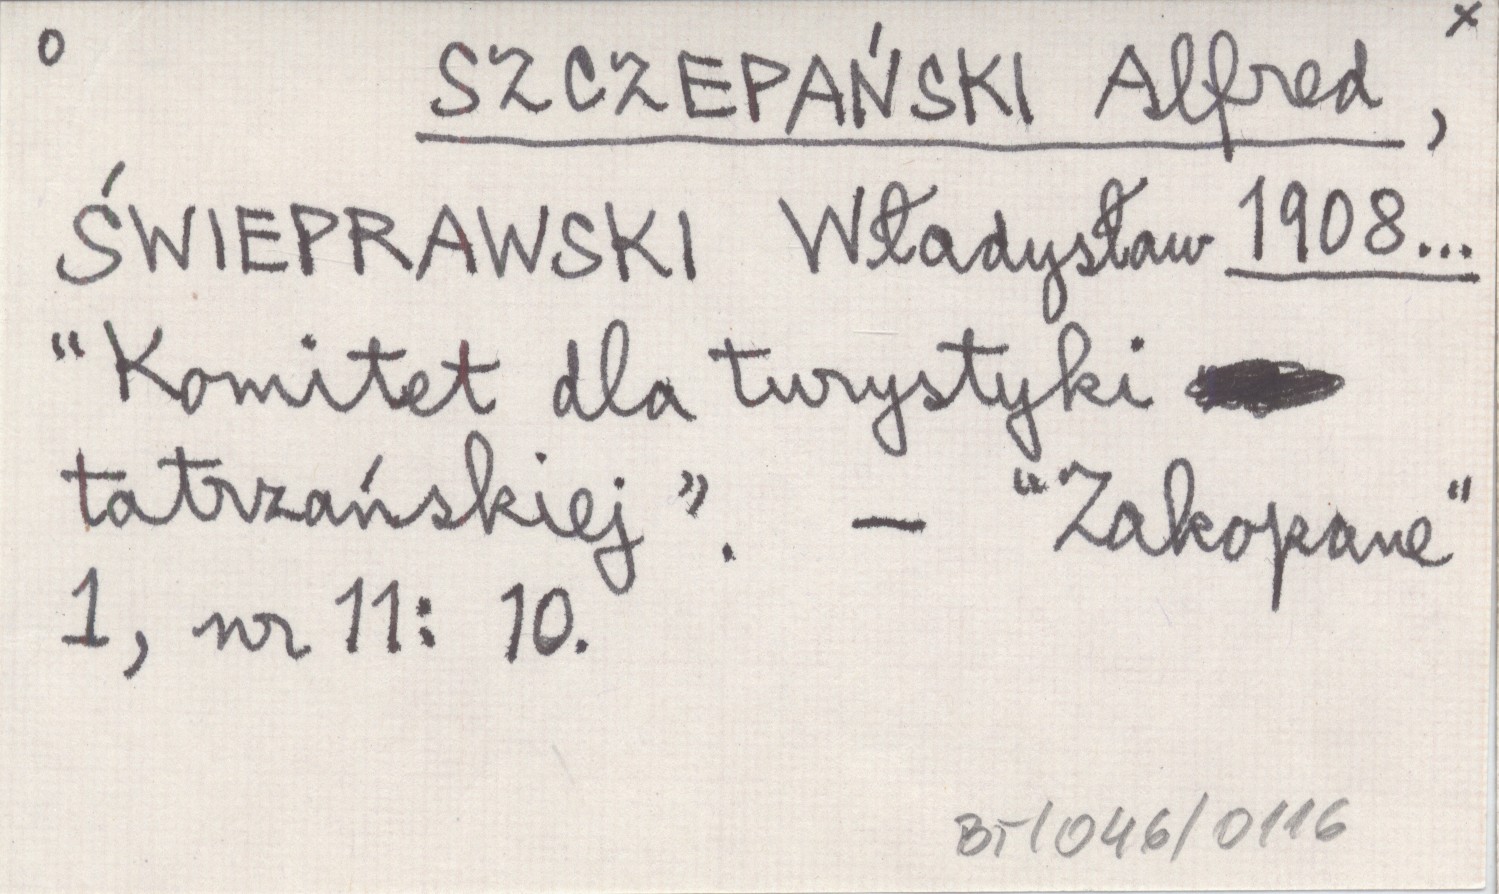 o x
SZCZEPAŃSKI Alfred,
ŚWIEPRAWSKI Władysław 1908...
“Komitet dla turystyki
tatrzańskiej”. — “Zakopane“
1, nr 11: 10.
BT/046/0116